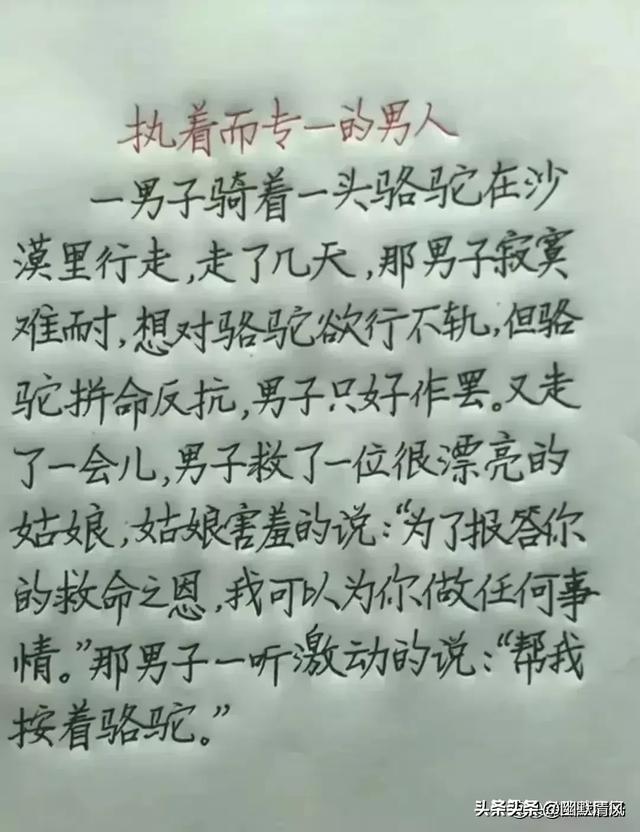 执着而专一的男人
一男子骑着一头骆驼在沙
漠里行走,走了几天,那男子寂寞
难耐,想对骆驼欲行不轨,但骆
驼拼命反抗,男子只好作罢。又走
了一会儿,男子救了一位很漂亮的
姑娘,姑娘害羞的说:“为了报答你
的救命之恩,我可以为你做任何事
情。”那男子一听激动的说:“帮我
按着骆驼。”
头条头条@幽默清风